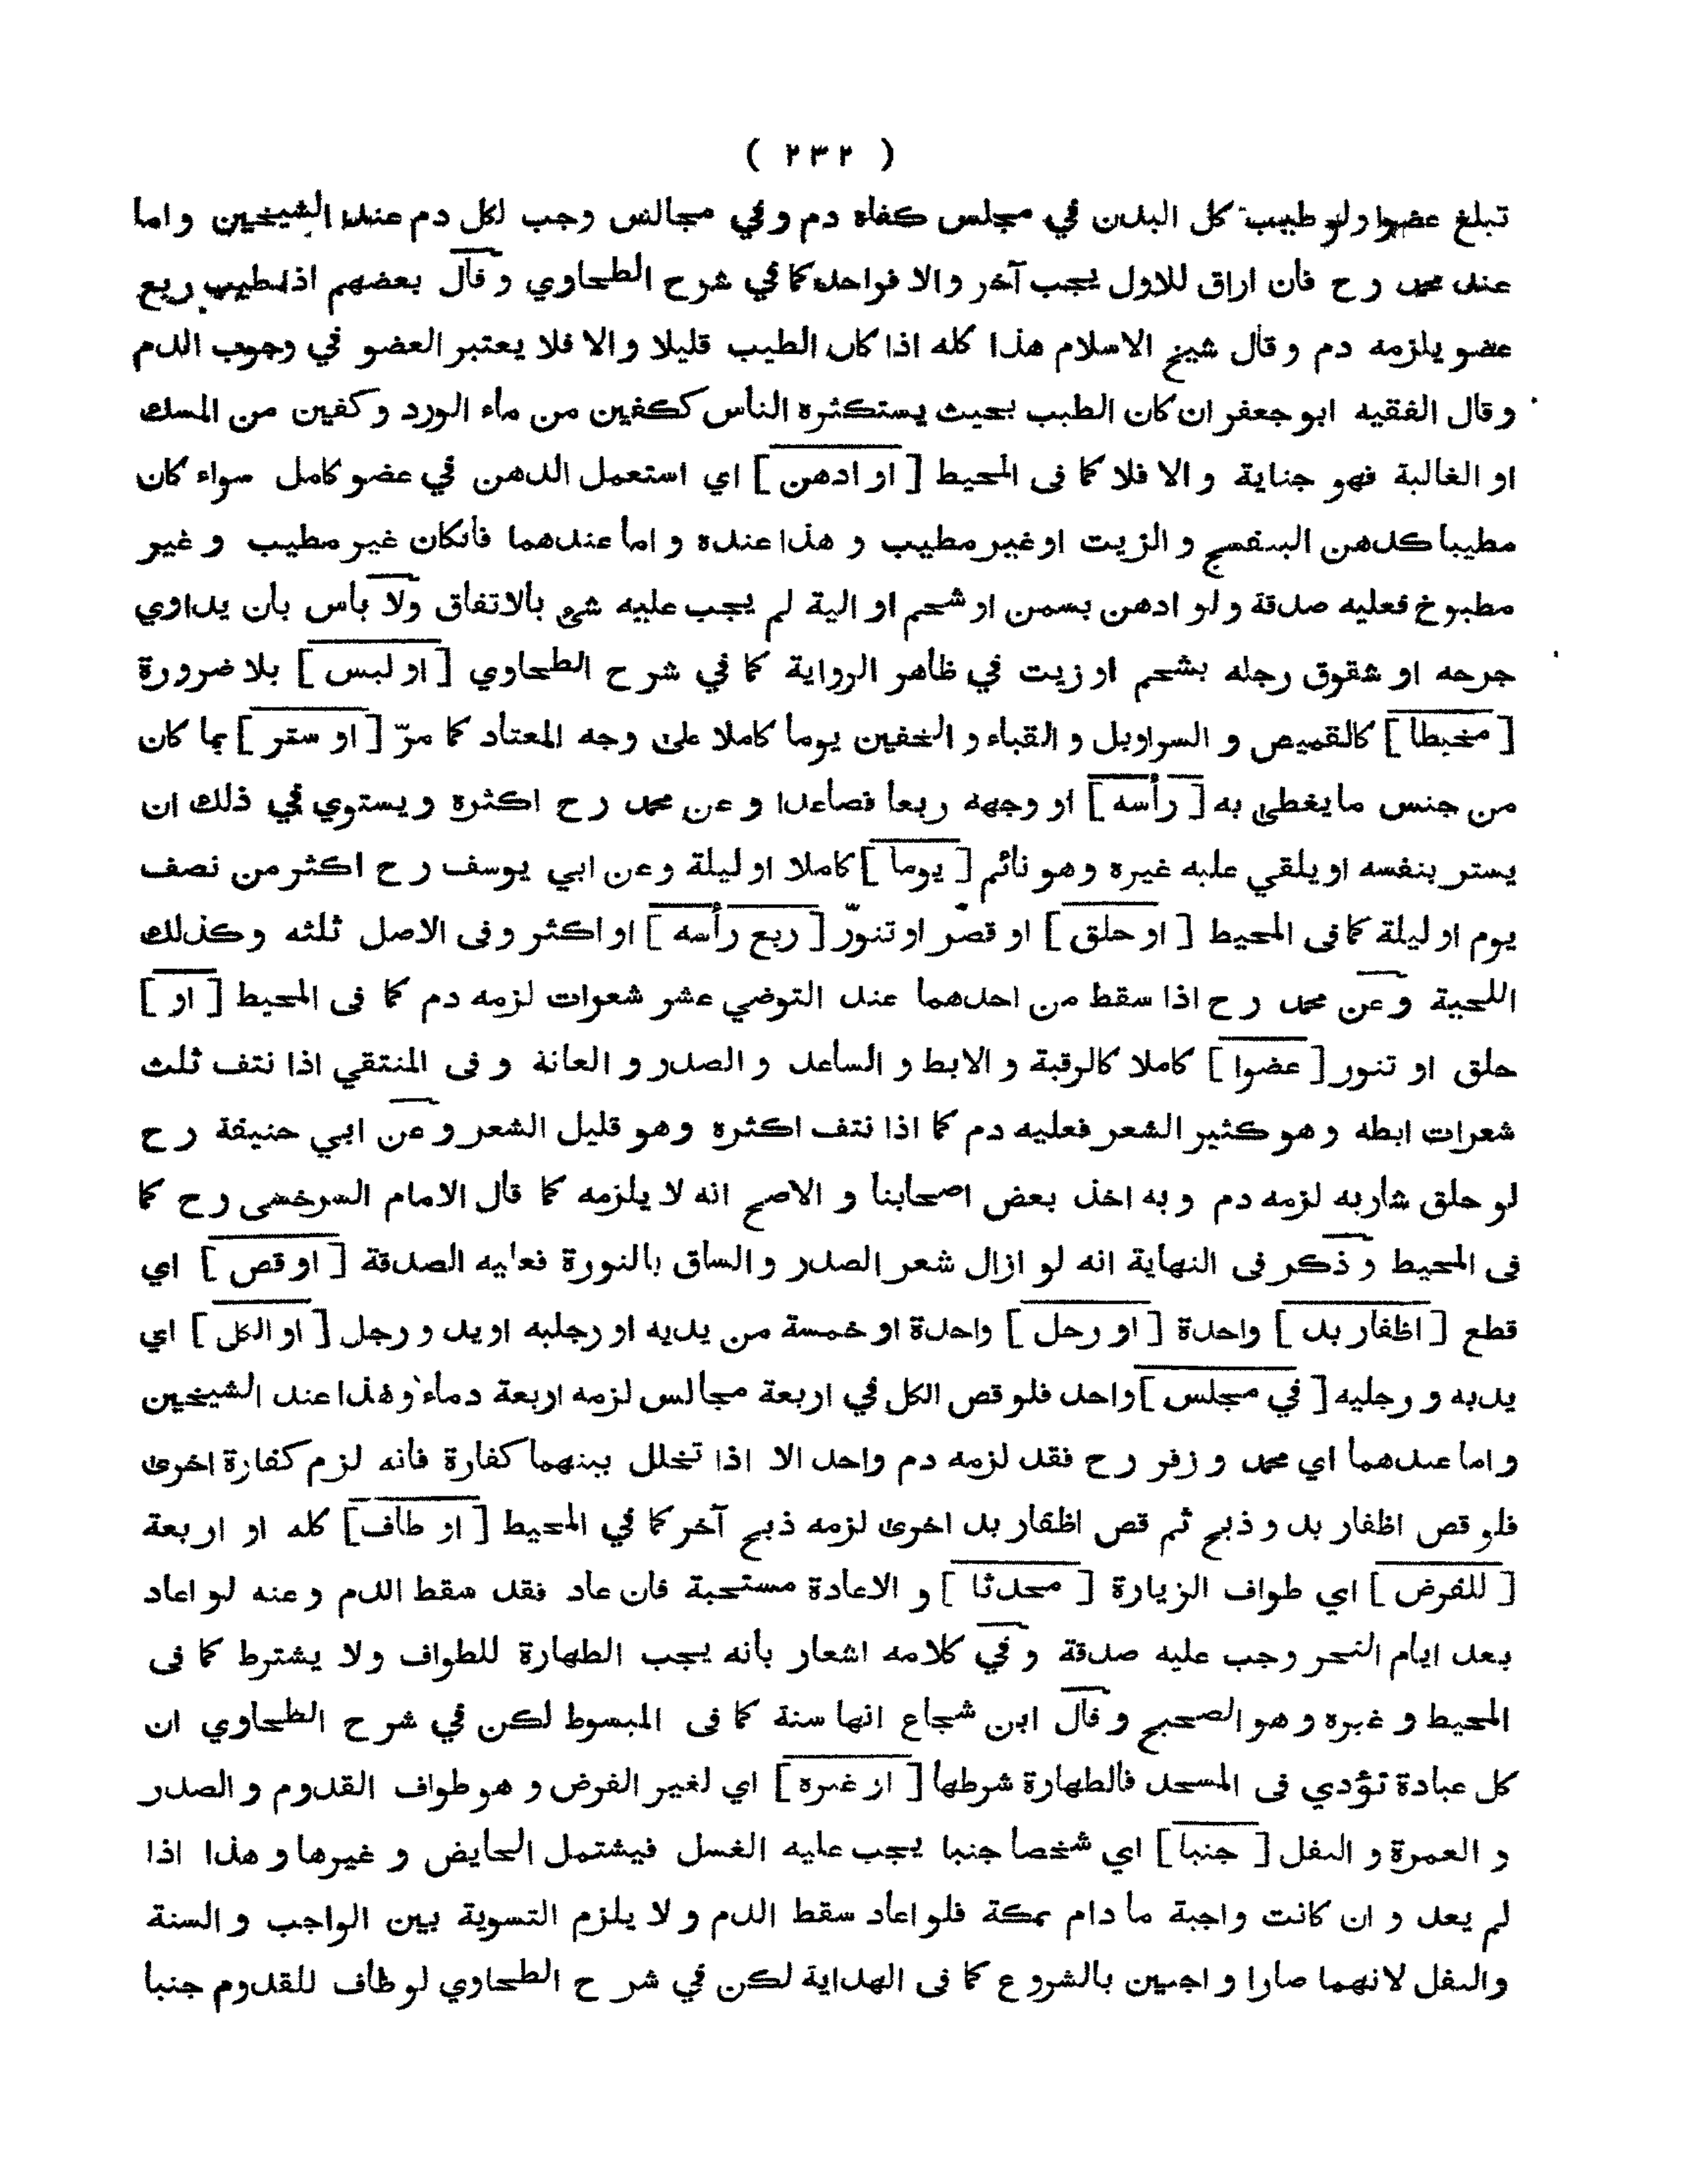 ( ٢٣٢ )
تبلغ عضوا ولو طيب كل البدن في مجلس كفاه دم و في مجالس وجب لكل دم عند الشيخين و اما
عند محمد رح فان اراق للاول يجب آخر والا فواحد كما في شرح الطحاوي و قال بعضهم اذا طيب ربع
عضو يلزمه دم و قال شيخ الاسلام هذا كله اذا كان الطيب قليلا والا فلا يعتبر العضو في وجوب الدم
و قال الفقيه ابو جعفر ان كان الطيب بحيث يستكثره الناس ككفين من ماء الورد و كفين من المسك
او الغالية فهو جناية و الا فلا كما فى المحيط [ او ادهن ] اي استعمل الدهن في عضو كامل سواء كان
مطيبا كدهن البنفسج و الزيت او غير مطيب و هذا عنده و اما عندهما فانكان غير مطيب و غير
مطبوخ فعليه صدقة و لو ادهن بسمن او شحم او الية لم يجب عليه شئ بالاتفاق ولا باس بان يداوي
جرحه او شقوق رجله بشحم او زيت في ظاهر الرواية كما في شرح الطحاوي [ او لبس ] بلا ضرورة
[ مخيطا ] كالقميص و السراويل و القباء و الخفين يوما كاملا على وجه المعتاد كما مرّ [ او ستر ] بما كان
من جنس ما يغطى به [ رأسه ] او وجهه ربعا فصاعدا و عن محمد رح اكثره و يستوي في ذلك ان
يستر بنفسه او يلقي عليه غيره و هو نائم [ يوما ] كاملا او ليلة و عن ابي يوسف رح اكثر من نصف
يوم او ليلة كما فى المحيط [ او حلق ] او قصّر او تنوّر [ ربع رأسه ] او اكثر و فى الاصل ثلثه و كذلك
اللحية و عن محمد رح اذا سقط من احدهما عند التوضي عشر شعرات لزمه دم كما فى المحيط [ او ]
حلق او تنور [ عضوا ] كاملا كالرقبة و الابط و الساعد و الصدر و العانة و فى المنتقي اذا نتف ثلث
شعرات ابطه و هو كثير الشعر فعليه دم كما اذا نتف اكثره و هو قليل الشعر و عن ابي حنيفة رح
لو حلق شاربه لزمه دم و به اخذ بعض اصحابنا و الاصح انه لا يلزمه كما قال الامام السرخسى رح كما
فى المحيط و ذكر فى النهاية انه لو ازال شعر الصدر و الساق بالنورة فعليه الصدقة [ او قص ] اي
قطع [ اظفار يد ] واحدة [ او رجل ] واحدة او خمسة من يديه او رجليه او يد و رجل [ او الكل ] اي
يديه و رجليه [ في مجلس ] واحد فلو قص الكل في اربعة مجالس لزمه اربعة دماء و هذا عند الشيخين
و اما عندهما اي محمد و زفر رح فقد لزمه دم واحد الا اذا تخلل بينهما كفارة فانه لزم كفارة اخرى
فلو قص اظفار يد و ذبح ثم قص اظفار يد اخرى لزمه ذبح آخر كما في المحيط [ او طاف ] كله او اربعة
[ للفرض ] اي طواف الزيارة [ محدثا ] و الاعادة مستحبة فان عاد فقد سقط الدم و عنه لو اعاد
بعد ايام النحر وجب عليه صدقة و في كلامه اشعار بانه يجب الطهارة للطواف ولا يشترط كما فى
المحيط و غيره و هو الصحيح و قال ابن شجاع انها سنة كما فى المبسوط لكن في شرح الطحاوي ان
كل عبادة تؤدي فى المسجد فالطهارة شرطها [ او غيره ] اي لغير الفرض و هو طواف القدوم و الصدر
و العمرة و النفل [ جنبا ] اي شخصا جنبا يجب عليه الغسل فيشتمل الحايض و غيرها و هذا اذا
لم يعد و ان كانت واجبة ما دام بمكة فلو اعاد سقط الدم و لا يلزم التسوية بين الواجب و السنة
والنفل لانهما صارا واجبين بالشروع كما فى الهداية لكن في شرح الطحاوي لو طاف للقدوم جنبا